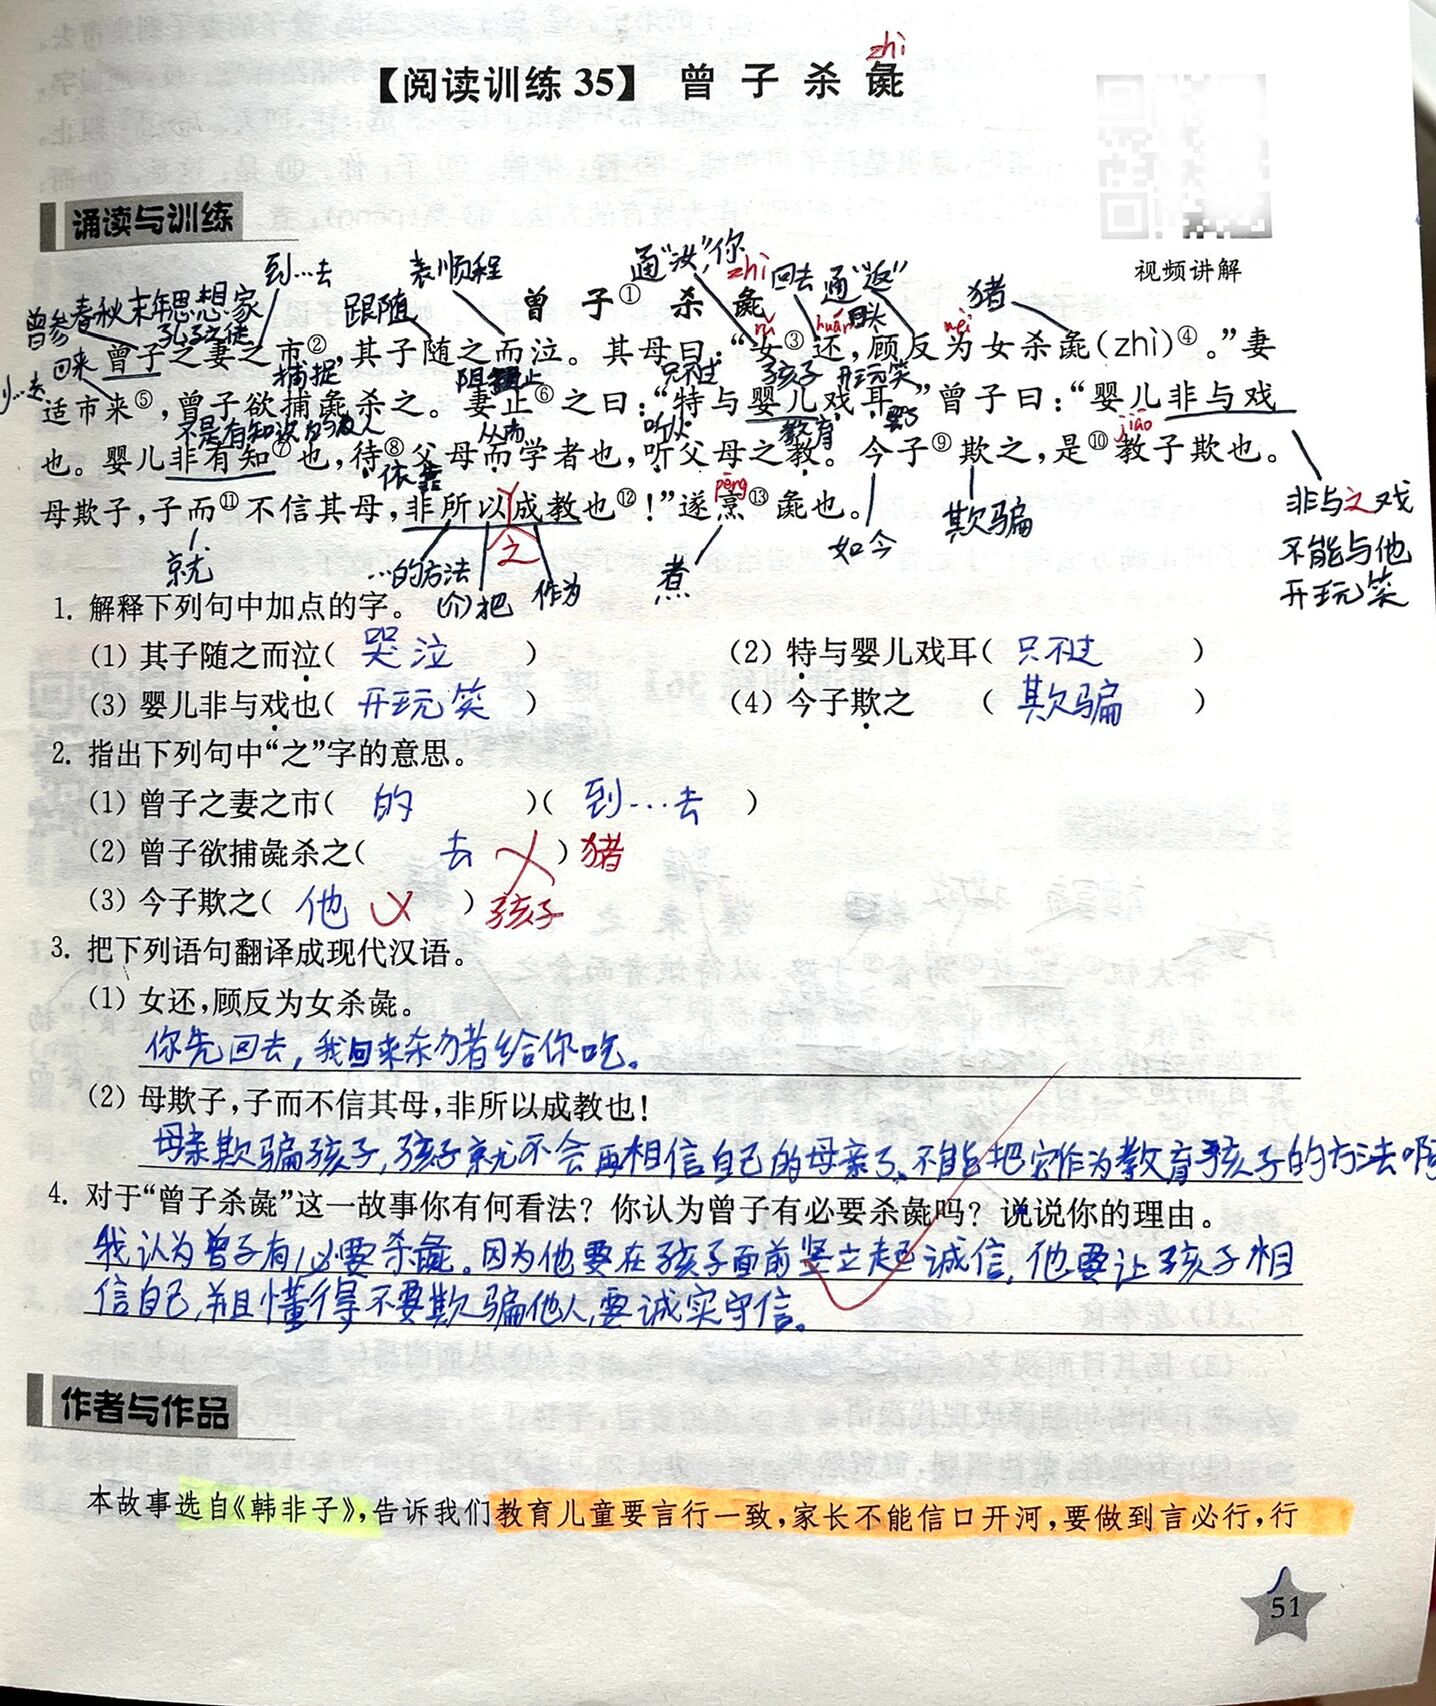 zhì
【阅读训练 35】 曾 子 杀 彘
诵读与训练
视频讲解
到…去 表顺程 通“汝”,你
zhì 回去 通“返” 猪
曾参 春秋末年思想家 跟随 回头
孔子之徒
曾 子① 杀 彘
rǔ huán wèi
回来 曾子之妻之市②,其子随之而泣。其母曰:“女③还,顾反为女杀彘(zhì)④。”妻
捕捉 阻止 只不过 孩子 开玩笑
适市来⑤,曾子欲捕彘杀之。妻止⑥之曰:“特与婴儿戏耳。”曾子曰:“婴儿非与戏
从而 听从 教育 jiāo
也。婴儿非有知⑦也,待⑧父母而学者也,听父母之教。今子⑨欺之,是⑩教子欺也。
依靠 pēng
母欺子,子而⑪不信其母,非所以成教也⑫!”遂烹⑬彘也。
就 …的方法 之 (介)把 作为 煮 如今 欺骗
非与之戏
不能与他
开玩笑
1. 解释下列句中加点的字。
(1) 其子随之而泣( 哭泣 ) (2) 特与婴儿戏耳( 只不过 )
(3) 婴儿非与戏也( 开玩笑 ) (4) 今子欺之 ( 欺骗 )
2. 指出下列句中“之”字的意思。
(1) 曾子之妻之市( 的 )( 到…去 )
(2) 曾子欲捕彘杀之( 去 ) 猪
(3) 今子欺之( 他 ) 孩子
3. 把下列语句翻译成现代汉语。
(1) 女还,顾反为女杀彘。
你先回去,我回来杀猪给你吃。
(2) 母欺子,子而不信其母,非所以成教也!
母亲欺骗孩子,孩子就不会再相信自己的母亲了、不能把它作为教育孩子的方法啊
4. 对于“曾子杀彘”这一故事你有何看法? 你认为曾子有必要杀彘吗? 说说你的理由。
我认为曾子有必要杀彘。因为他要在孩子面前竖立起诚信,他要让孩子相
信自己,并且懂得不要欺骗他人,要诚实守信。
作者与作品
本故事选自《韩非子》,告诉我们教育儿童要言行一致,家长不能信口开河,要做到言必行,行
51